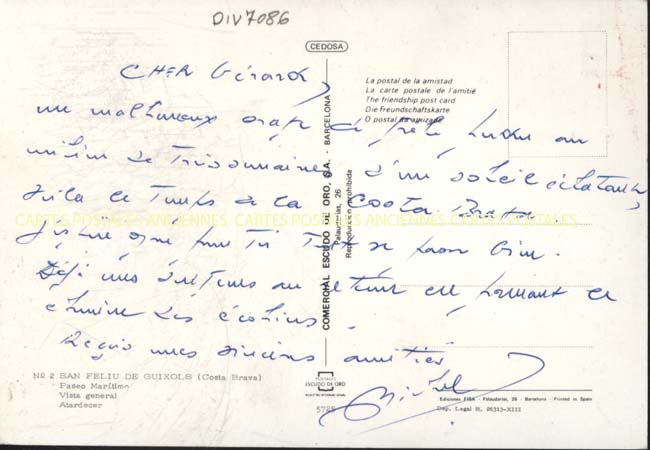 DIV7086
CEDOSA
La postal de la amistad
La carte postale de l'amitié
The friendship post card
Die Freundschaftskarte
O postal da amizade
CHER Gérard,
un malheureux orage à perdu au
milieu de Trois semaines d'un soleil éclatant,
voila le temps de la Costa Brava
J'espère que pour toi Tout se passe bien.
Déjà nous songeons au retour en prenant le
chemin des écoliers.
Reçois mes sincères amitiés
Michel
CARTES POSTALES ANCIENNES CARTES POSTALES ANCIENNES CARTES POSTALES
COMERCIAL ESCUDO DE ORO, S.A. - BARCELONA
Palaudarias, 26
Reproducción prohibida
Nº 2 SAN FELIU DE GUIXOLS (Costa Brava)
Paseo Marítimo
Vista general
Atardecer
POSTALES
ESCUDO DE ORO
5785
Ediciones FISA - Palaudarias, 26 - Barcelona - Printed in Spain
Dep. Legal B. 26313-XIII